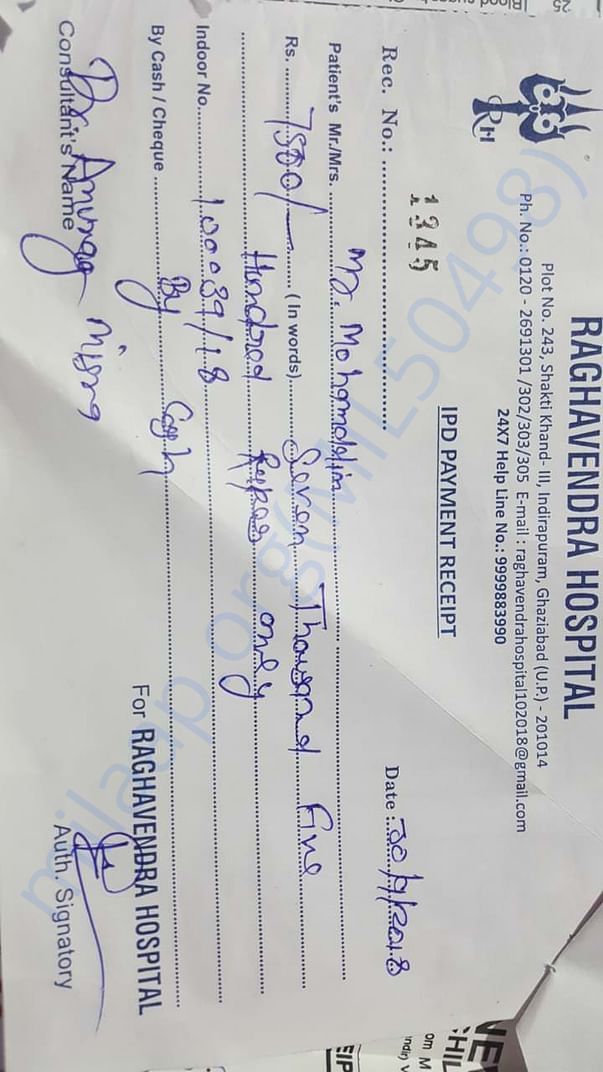 RH
RAGHAVENDRA HOSPITAL
Plot No. 243, Shakti Khand- III, Indirapuram, Ghaziabad (U.P.) - 201014
Ph. No.: 0120 - 2691301 /302/303/305 E-mail : raghavendrahospital102018@gmail.com
24X7 Help Line No.: 9999883990
IPD PAYMENT RECEIPT
1345
Rec. No.: Date :
Patient's Mr./Mrs. Mr. Mohamoldin
Rs. 7500/- (In words) Seven Thousand Five
Hundred Rupees only
Indoor No. 100039/18
By Cash / Cheque By Cash
For RAGHAVENDRA HOSPITAL
Dr. Anurag Misra
Consultant's Name
Auth. Signatory
milaap.org(MIL50498)